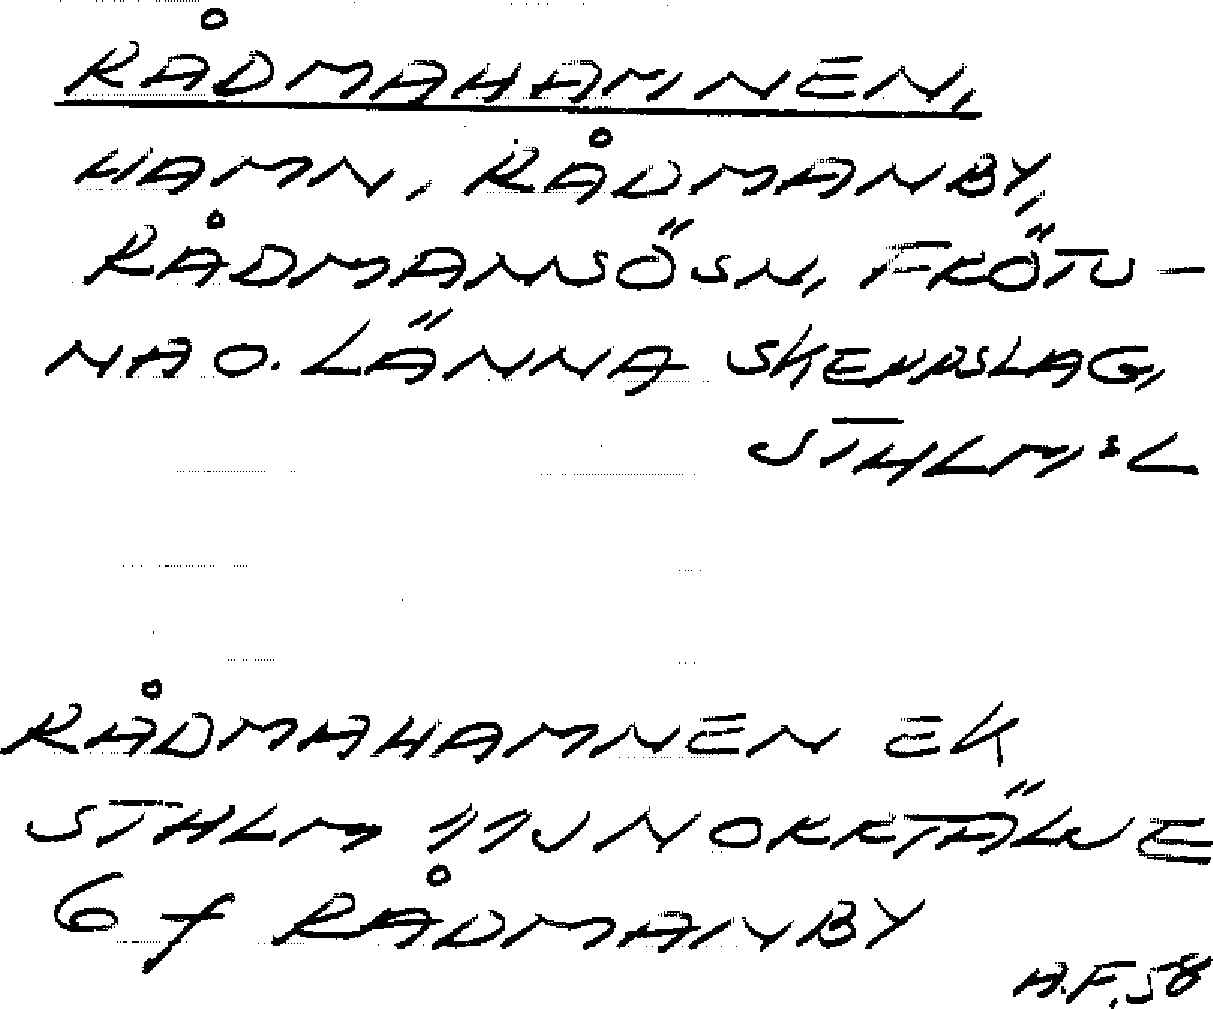 RÅDMAHAMNEN,
HAMN, RÅDMANBY,
RÅDMANSÖ SN, FRÖTU-
NA O. LÄNNA SKEPPSLAG,
STHLM:S L
RÅDMAHAMNEN EK
STHLM 11J NORRTÄLJE
6 f RÅDMANBY
A.F. 58